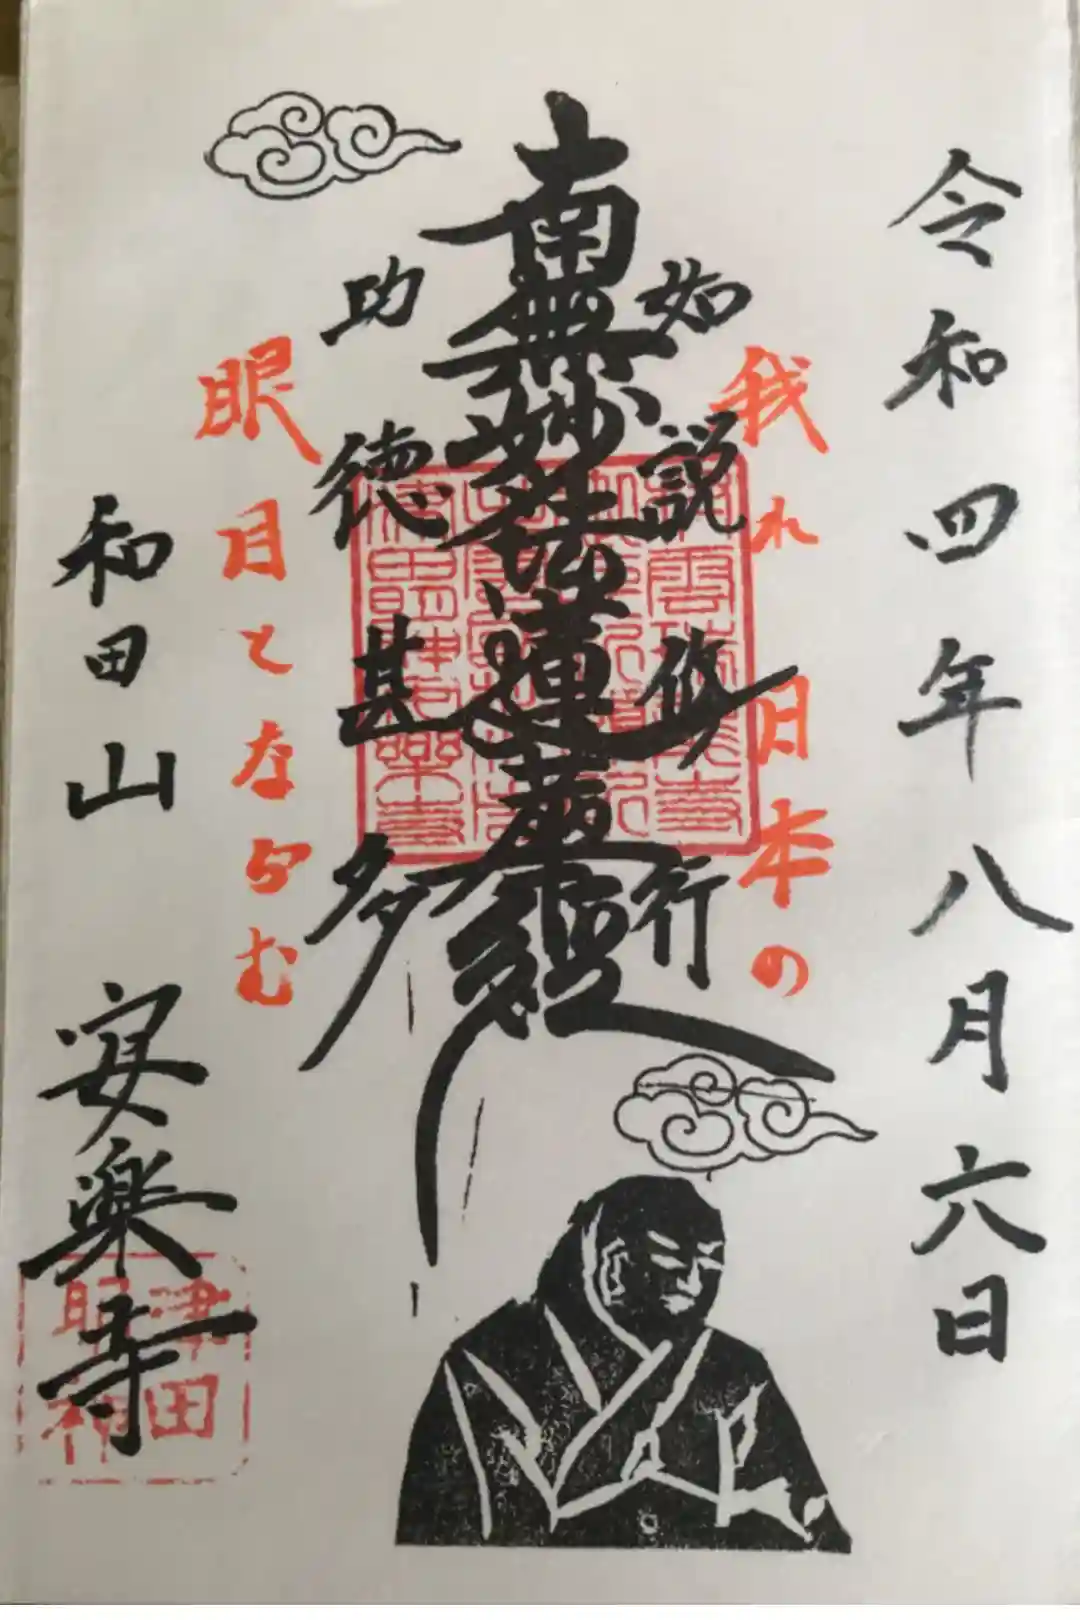 令和四年八月六日
我れ日本の
如説修行
南無妙法蓮華經
功徳甚多
眼目とならむ
和田山 安樂寺
津田
明神